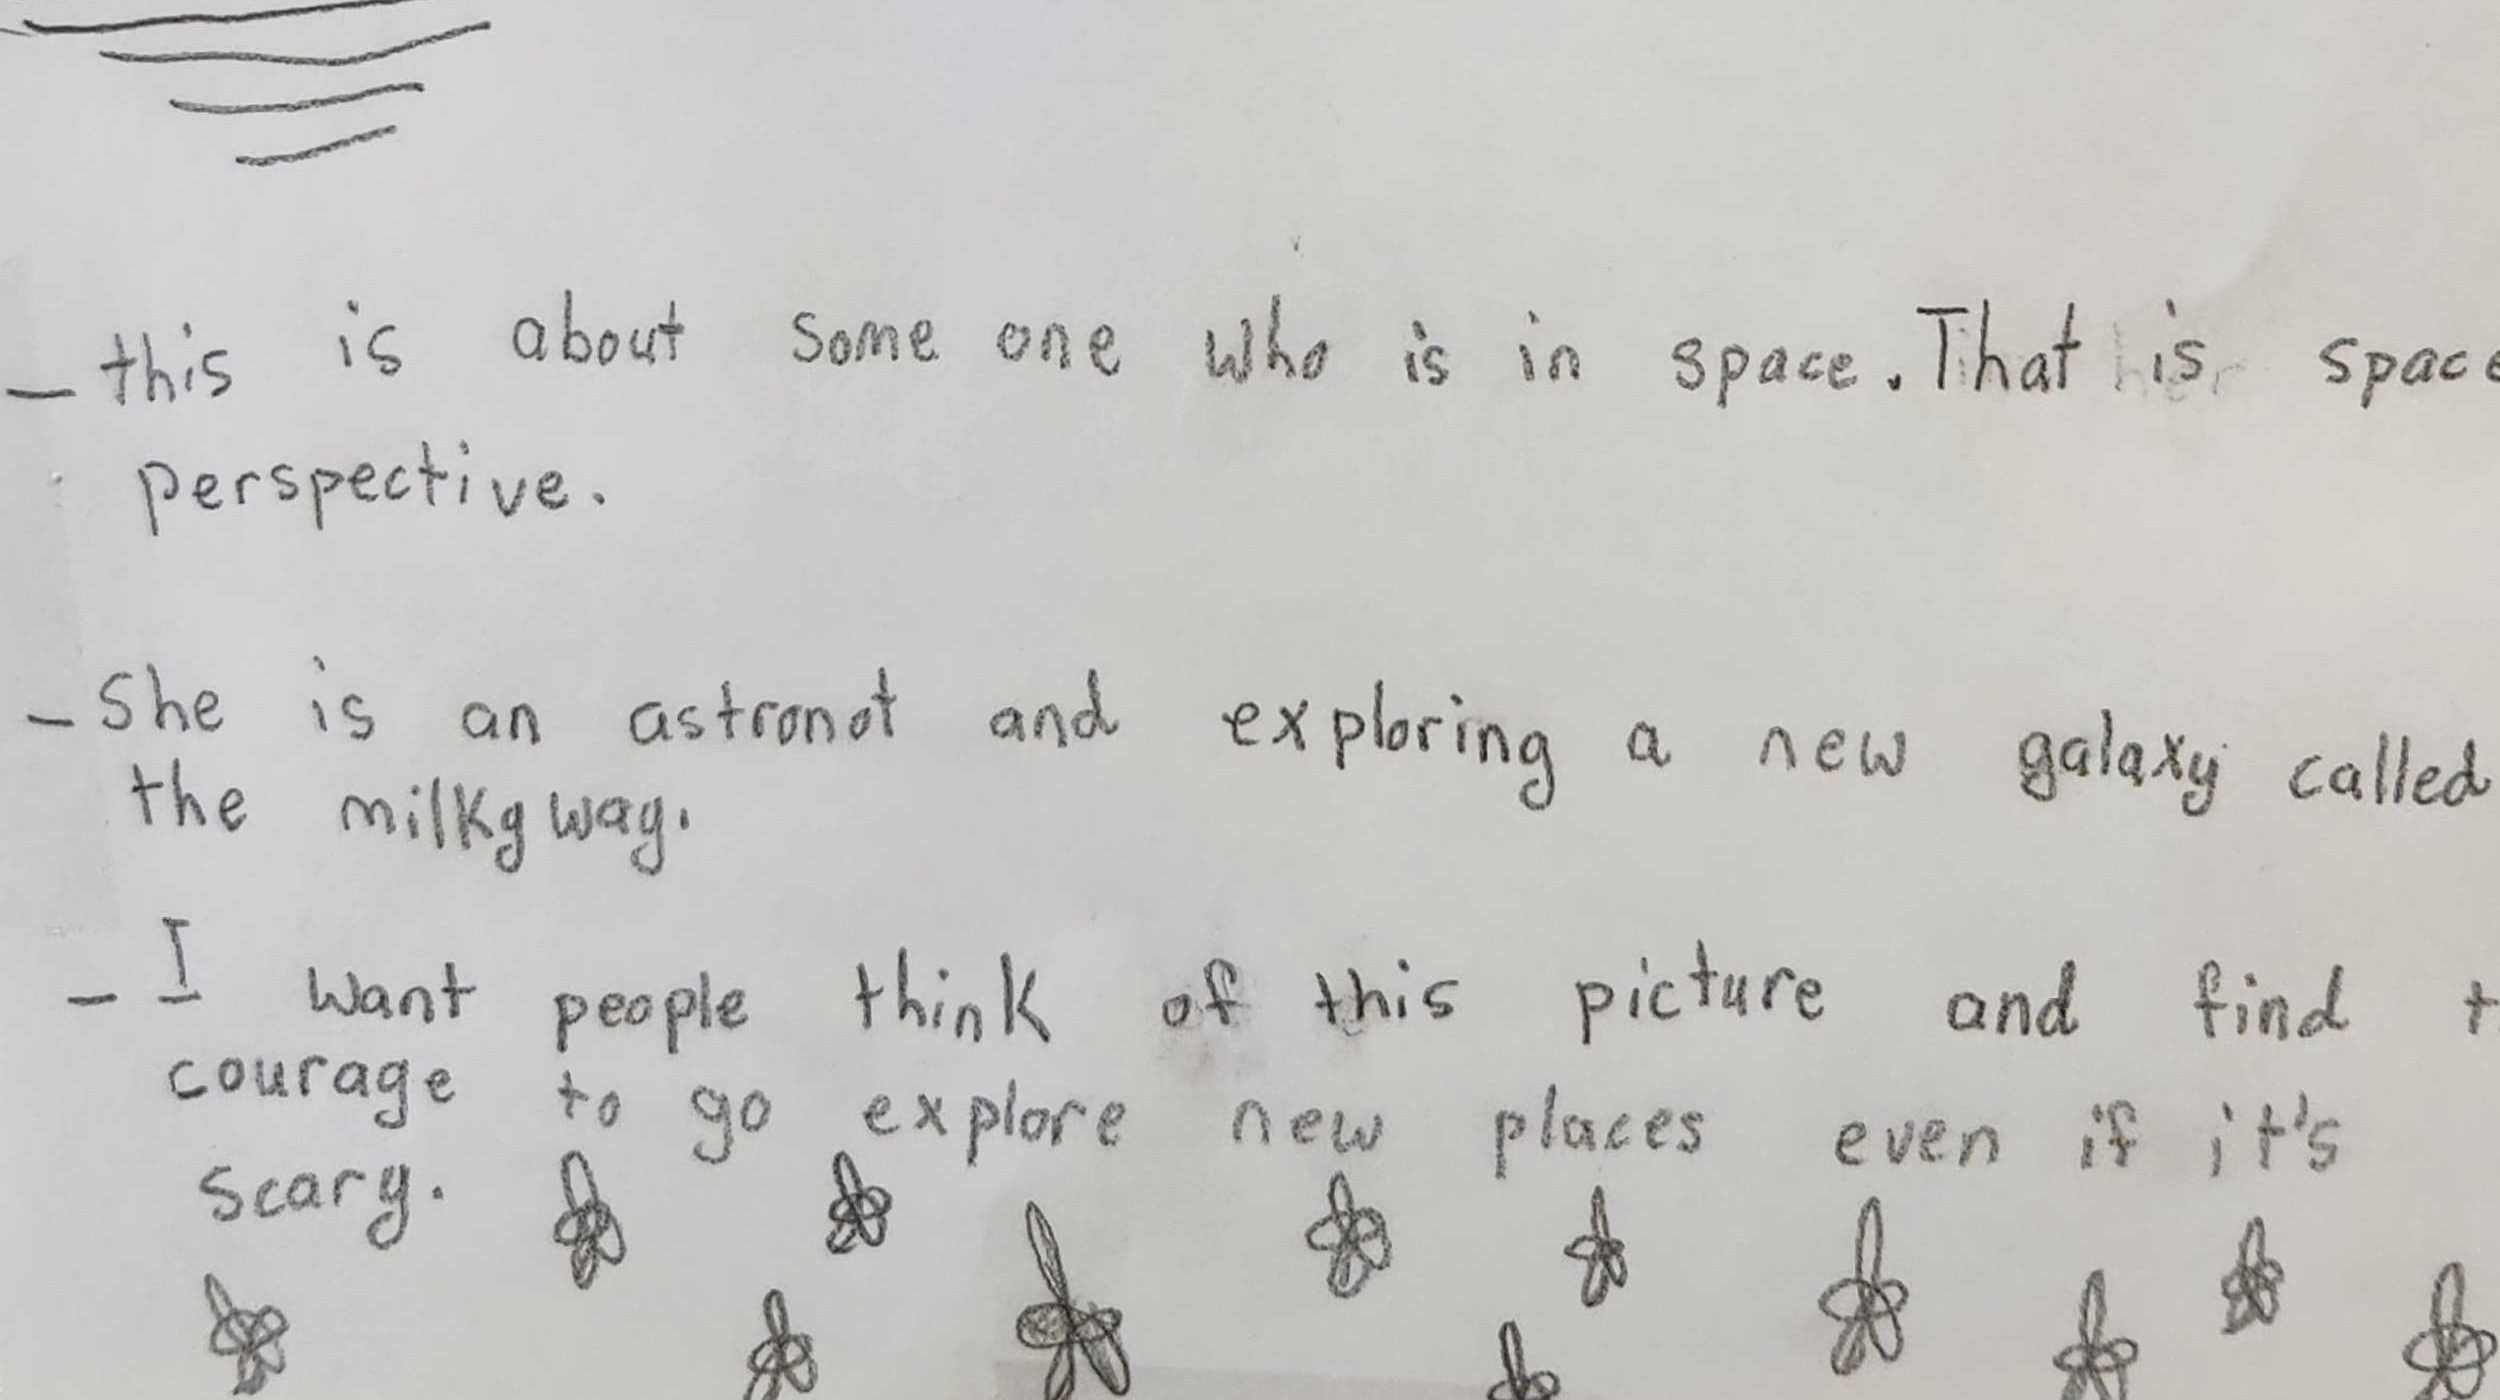 - this is about some one who is in space. That is space
perspective.
- She is an astronot and exploring a new galaxy called
the milky way.
- I want people think of this picture and find
courage to go explore new places even if it's
scary.